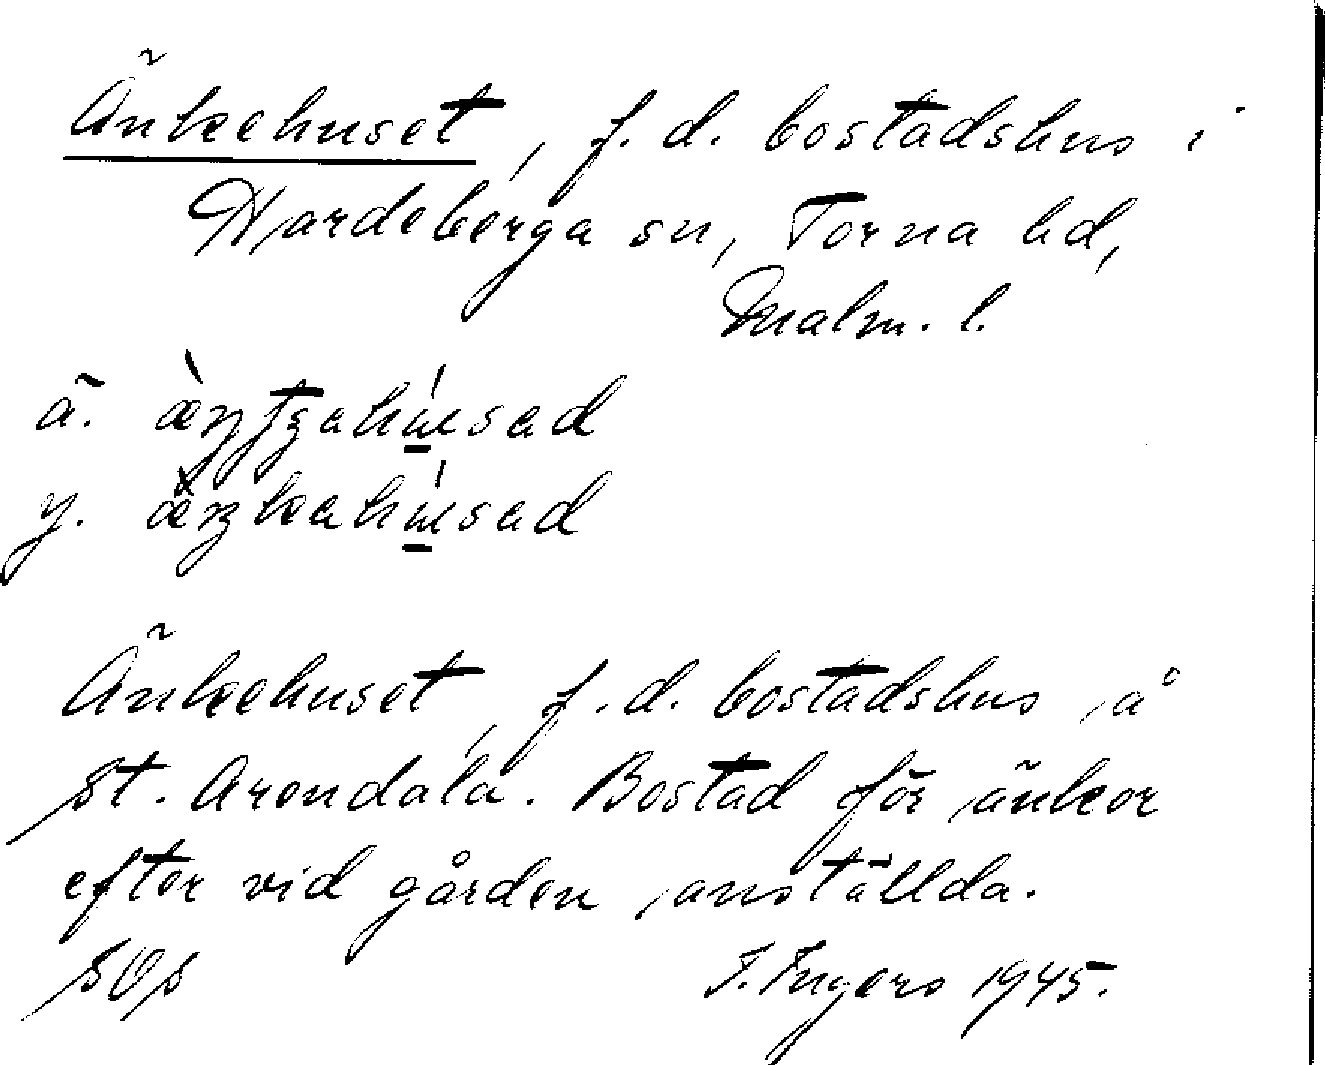 Änkehuset, f.d. bostadshus i
Hardeberga sn, Torna hd,
Malm. l.
ä.
y.
Änkehuset, f.d. bostadshus å
St. Arendala. Bostad för änkor
efter vid gården anställda.
SOS I. Ingers 1945.